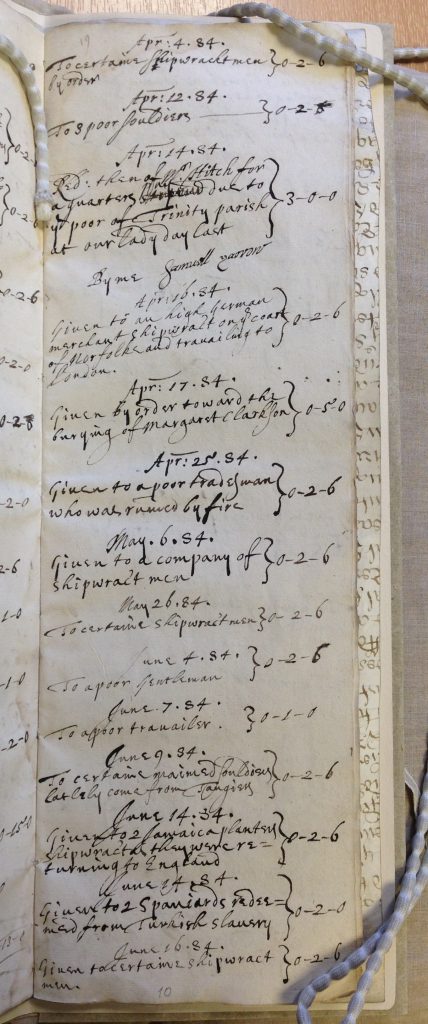 Apr: 4. 84.
To certaine shipwrackt men } 0-2-6
by order
Apr: 12. 84.
To 3 poor souldiers } 0-2-
Apr: 14. 84.
Rd: then of Mr Hitch for
a quarters due to
ye poor of Trinity parish } 3-0-0
at our lady day last
By me Samuell
Apr: 16. 84.
Given to an high German
merchant shipwract on ye coast } 0-2-6
of Norfolke and travailing to
London.
Apr: 17. 84.
Given by order toward the
burying of Margaret Clarkson } 0-5-0
Apr: 25. 84.
Given to a poor tradesman
who was ruined by fire } 0-2-6
May. 6. 84.
Given to a company of
shipwract men } 0-2-6
May 26. 84.
To certaine shipwract men } 0-2-6
June 4. 84.
To a poor Gentleman } 0-2-6
June. 7. 84.
To a poor travailer. } 0-1-0
June 9. 84.
To certaine maimed souldiers
latlely come from Tangiers } 0-2-6
June 14. 84.
Given to 2 Jamaica planters
shipwract as they were re= } 0-2-6
turning to England
June 84.
Given to 2 Spaniards redee=
med from Turkish slavery } 0-2-0
June 16. 84.
Given to certaine shipwract } 0-2-6
men.
10